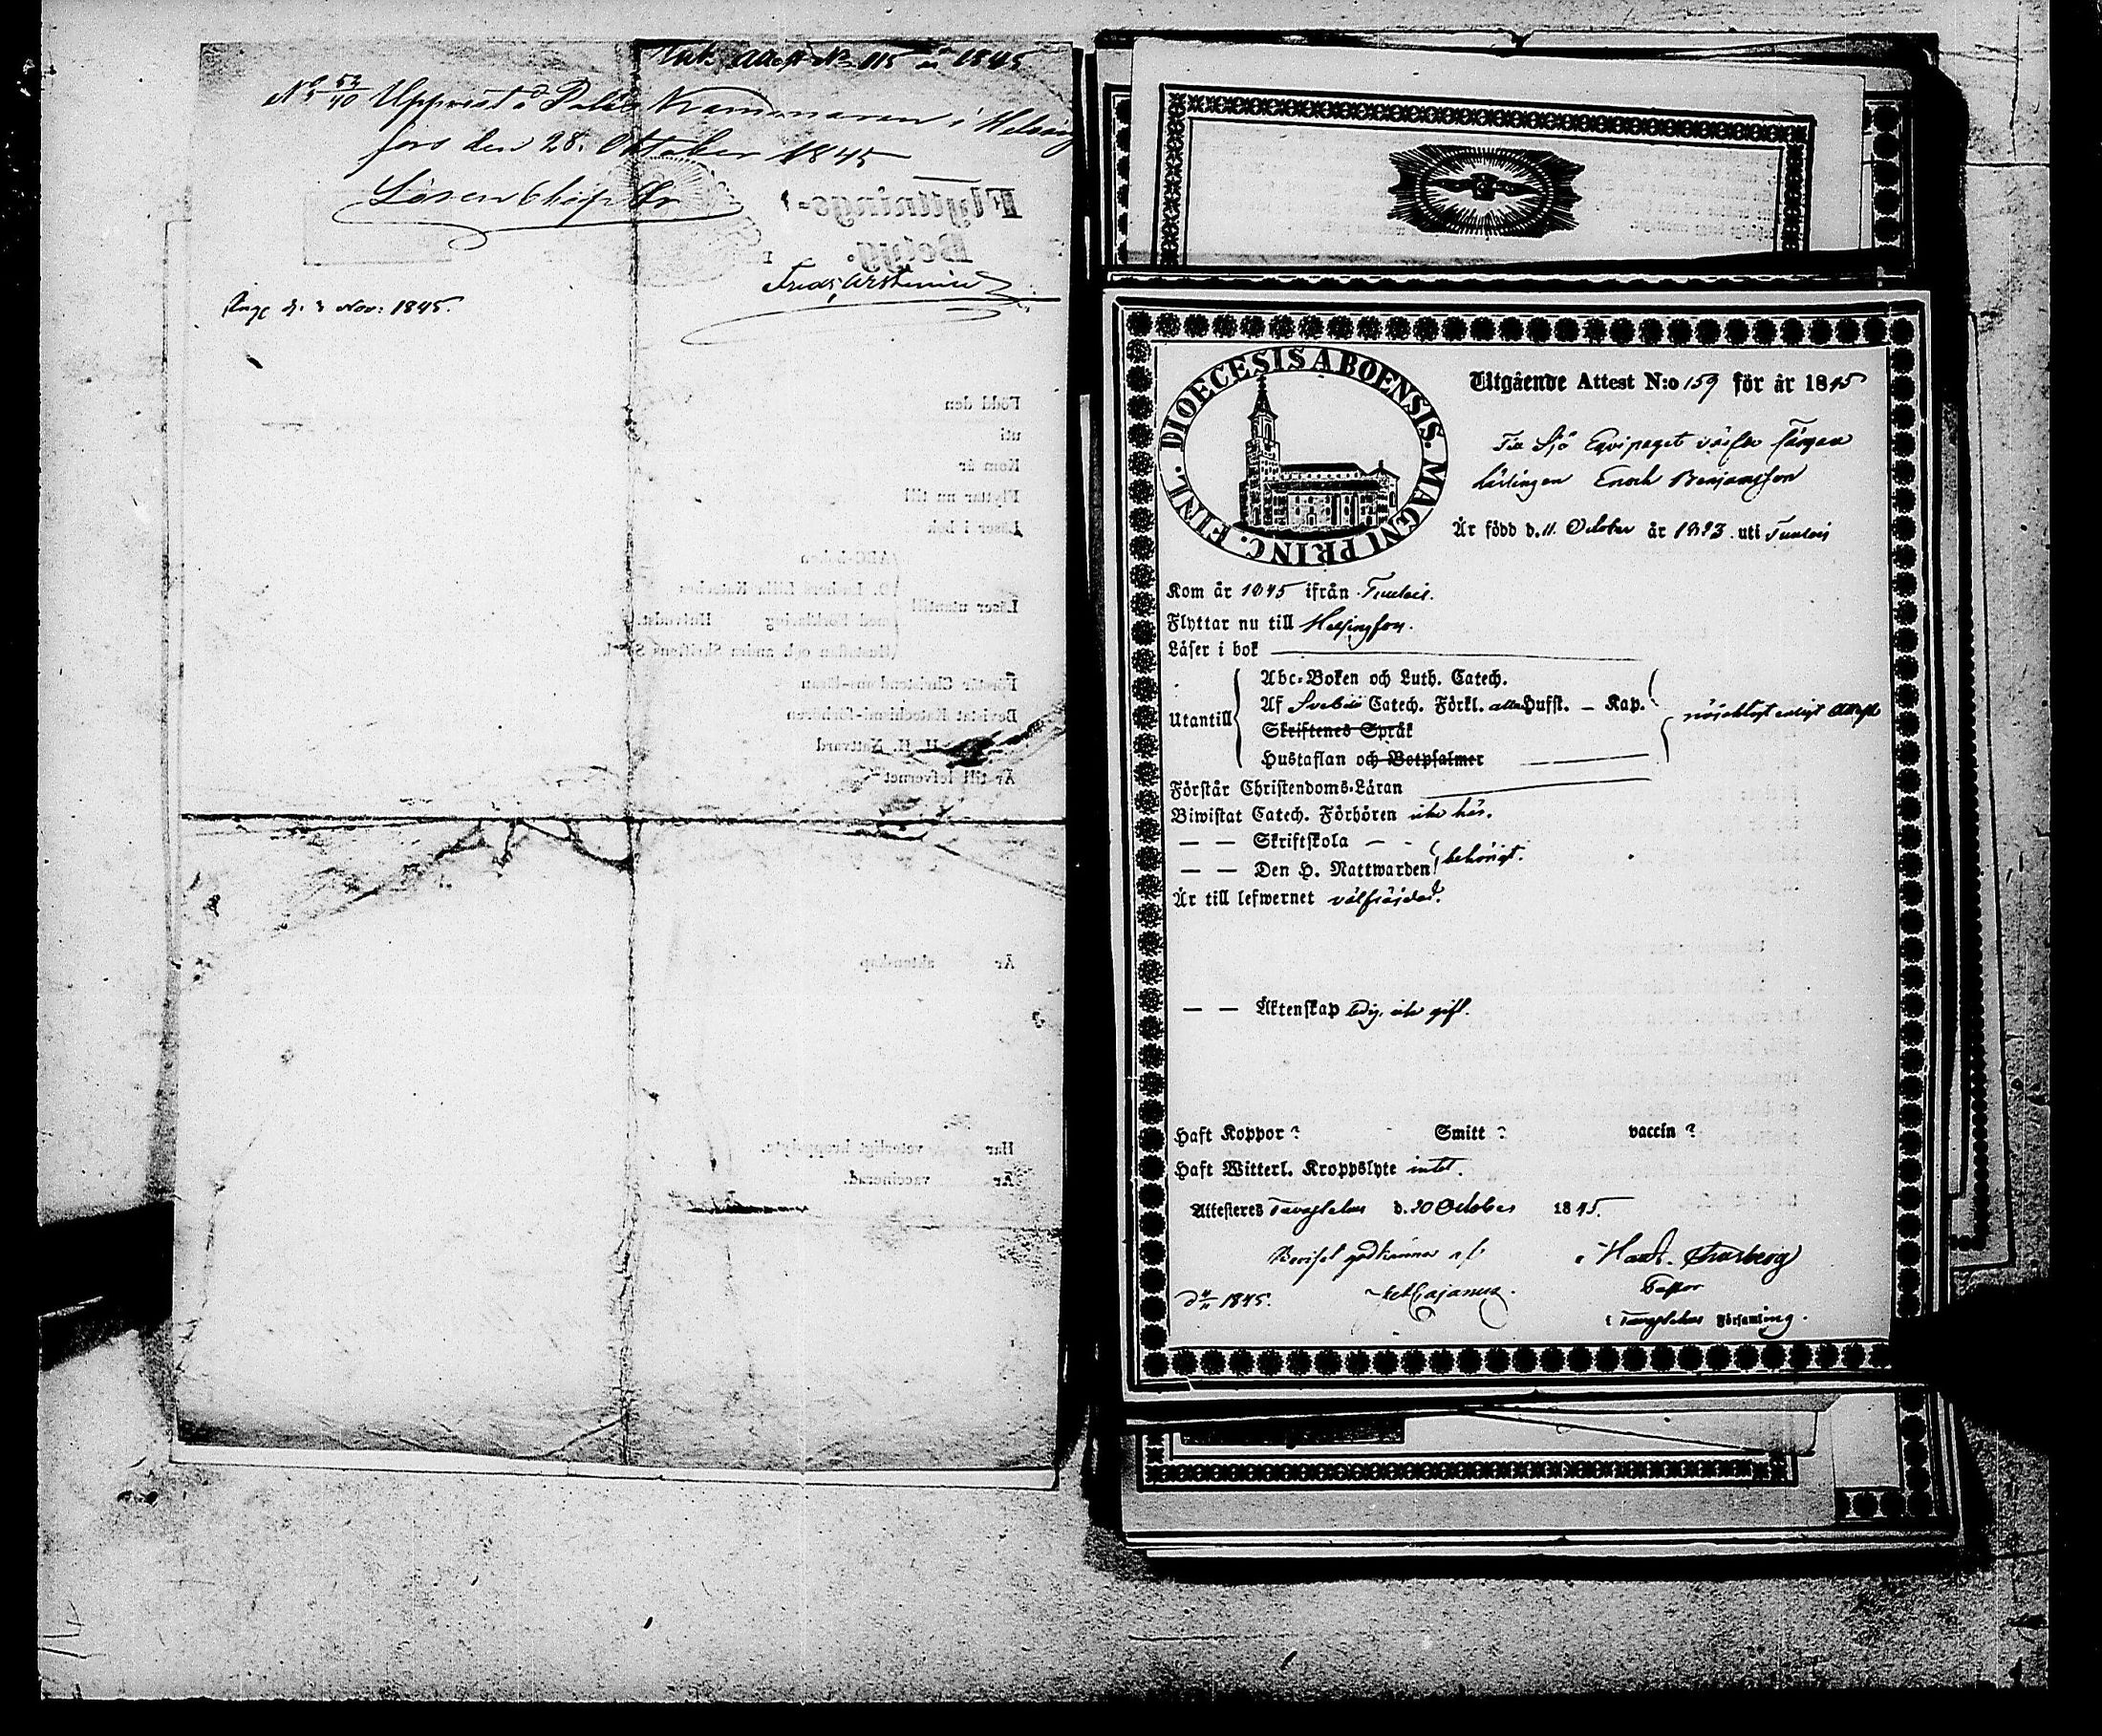 Ink. Attest No 115 år 1845
No 52/40 Uppvist å Polis Kammaren i Helsing
fors den 28. Oktober 1845
Lösen 6 kop Sr
Flyttnings-
Betyg.
Ang. d. 3 Nov: 1845.
Född den
uti
Kom år
Flyttar nu till
Läser i bok
ABC-boken
D. Luthers Lilla Kateches
Läser utantill
med Förklaring Hufvudst.
Hustaflan och andra Skriftens Språk.
Förstår Christendoms-läran
Bevistat Katechismi-förhören
H. H. Nattvard
Är till lefvernet
Är äktenskap
Har veterligt kroppslyte.
Är vaccinerad.
DIOECESIS ABOENSIS. MAGNI PRINC. FINL.
Utgående Attest N:o 159 för år 1845
Till Sjö Equipaget värfvade
Enoch Benjamsson
Är född d. 11. October år 1823 uti Tuulois
Kom år 1845 ifrån Tuulois.
Flyttar nu till Helsingfors.
Läser i bok
Abc-Boken och Luth. Catech.
Utantill
Af Svebilii Catech. Förkl. alla Hufst. – Kap.
nöjaktigt enligt Attest
Skriftenes Språk
Hustaflan och Botpsalmer
Förstår Christendoms-Läran
Biwistat Catech. Förhören icke här.
— — Skriftskola — -
— — Den H. Nattwarden behörigt.
Är till lefwernet välfräjdad.
— — Äktenskap ledig, icke gift.
Haft Koppor? Smitt? vaccin?
Haft Witterl. Kroppslyte intet.
Attesteres Tavastehus d. 20 October 1845.
Beviset godkännes af
d 4/11 1845. Cajanus.
Pastor
i Tavastehus Församling.